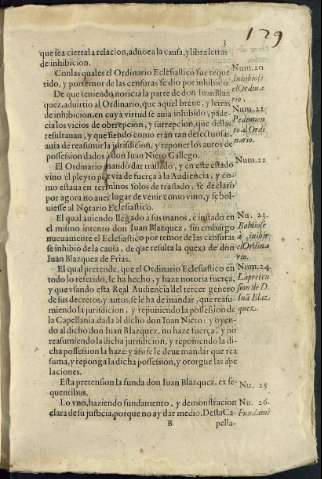 129
3
que sea cierta la relacion, adnoea la causa, y libra letras
de inhibicion.
Con las quales el Ordinario Eclesiastico fue reque
rido, y por temor de las censuras se dio por inhibido
De que teniendo noticia la parte de don Iuan Blaz
quez, aduirtio al Ordinario, que aquel breue, y letras
de inhibicion, en cuya virtud se auia inhibido, pade
cia los vicios de obrepcion, y surrepcion, que dellas
resultauan, y que siendo como eran tan defectuosas,
auia de reasumir la jurisdicion, y reponer los autos de
possession dados a don Iuan Nieto Gallego.
El Ordinario mando dar traslado, y en este estado
vino el pleyto por via de fuerça a la Audiencia, y co-
mo estaua en terminos solos de traslado, se declarò
por agora no auer lugar de venir como vino, y se bol-
uiesse al Notario Eclesiastico.
El qual auiendo llegado a sus manos, e instado en
el mismo intento don Iuan Blazquez, sin embargo
nueuamente el Eclesiastico por temor de las censuras
se inhibio de la causa, de que resulta la quexa de don
Iuan Blazquez de Frias.
El qual pretende, que el Ordinario Eclesiastico en
todo lo referido, le ha hecho, y haze notoria fuerça,
y que viendo esta Real Audiencia del tercer genero
de sus decretos, y autos, se le ha de mandar, que reasu-
miendo la jurisdicion, y reponiendo la possession de
la Capellania dada al dicho don Iuan Nieto, y oyen-
do al dicho don Iuan Blazquez, no haze fuerça, y no
reasumiendo la dicha jurisdicion, y reponiendo la di-
cha possession la haze y assi se le deue mandar que rea
suma, y reponga la dicha possession, y otorgue las ape
laciones.
Esta pretension la funda don Iuan Blazquez, ex se-
quentibus.
Lo vno, haziendo fundamento, y demonstracion
clara de su justicia, porque no ay dar medio. Desta Ca-
B
pella-
Num. 20
Inhibiose
el Ordina
rio.
Num. 21.
Pedimen-
to al Ordi
nario.
Num. 22
Nu. 23.
Buelue
a inhibir
el Ordina
rio.
Num. 24.
La preten
sion de D.
Iuã Blaz
quez.
Nu. 25
Nu. 26.
Fundamẽ